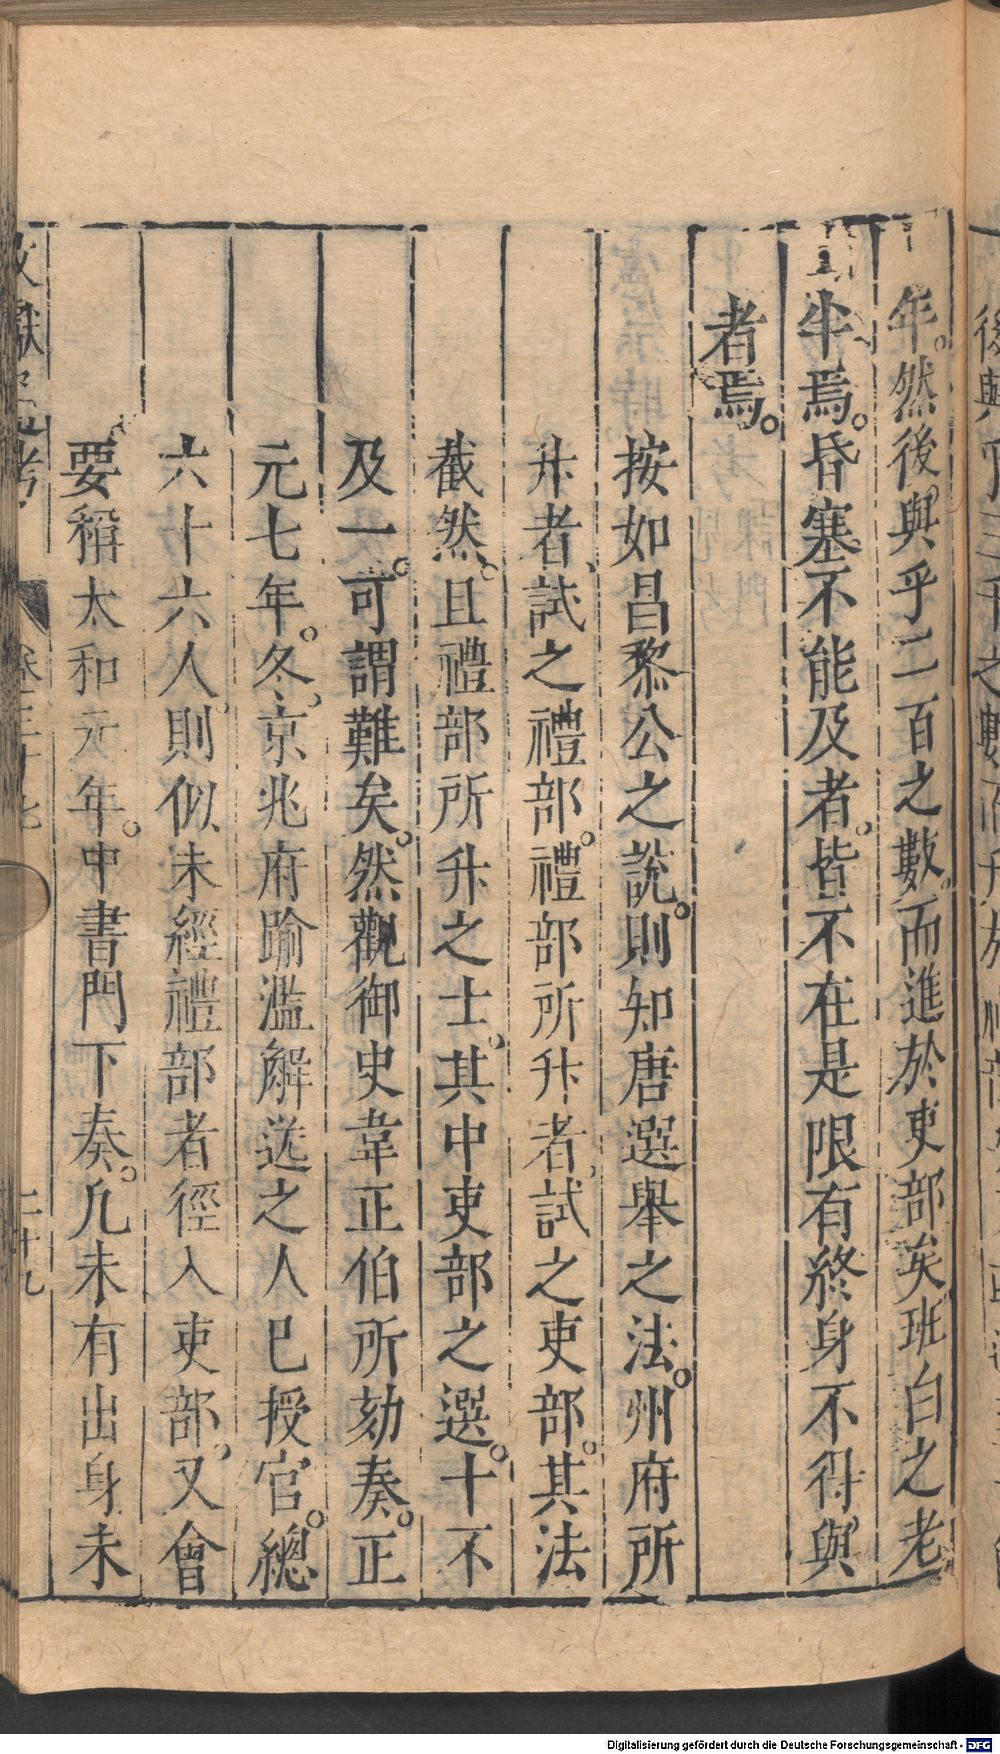 年。然後與乎二百之數。而進於吏部矣班白之老
半焉。昏塞不能及者。皆不在是限有終身不得與
者焉。
按如昌黎公之說。則知唐選舉之法。州府所
升者、試之禮部。禮部所升者、試之吏部。其法
截然。且禮部所升之士、其中吏部之選。十不
及一。可謂難矣。然觀御史韋正伯所劾奏。正
元七年。冬、京兆府踰濫解送之人已授官。總
六十六人、則似未經禮部者徑入吏部、又會
要稱太和元年。中書門下奏。凡未有出身未
文獻通考
卷三十七
二十九
Digitalisierung gefördert durch die Deutsche Forschungsgemeinschaft - DFG